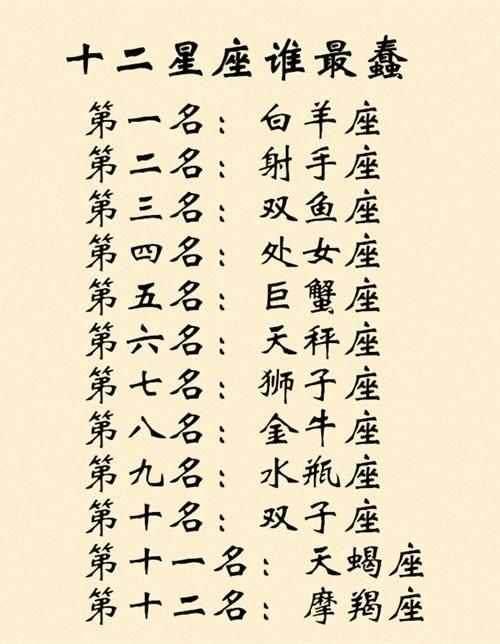 十二星座谁最蠢
第一名：白羊座
第二名：射手座
第三名：双鱼座
第四名：处女座
第五名：巨蟹座
第六名：天秤座
第七名：狮子座
第八名：金牛座
第九名：水瓶座
第十名：双子座
第十一名：天蝎座
第十二名：摩羯座